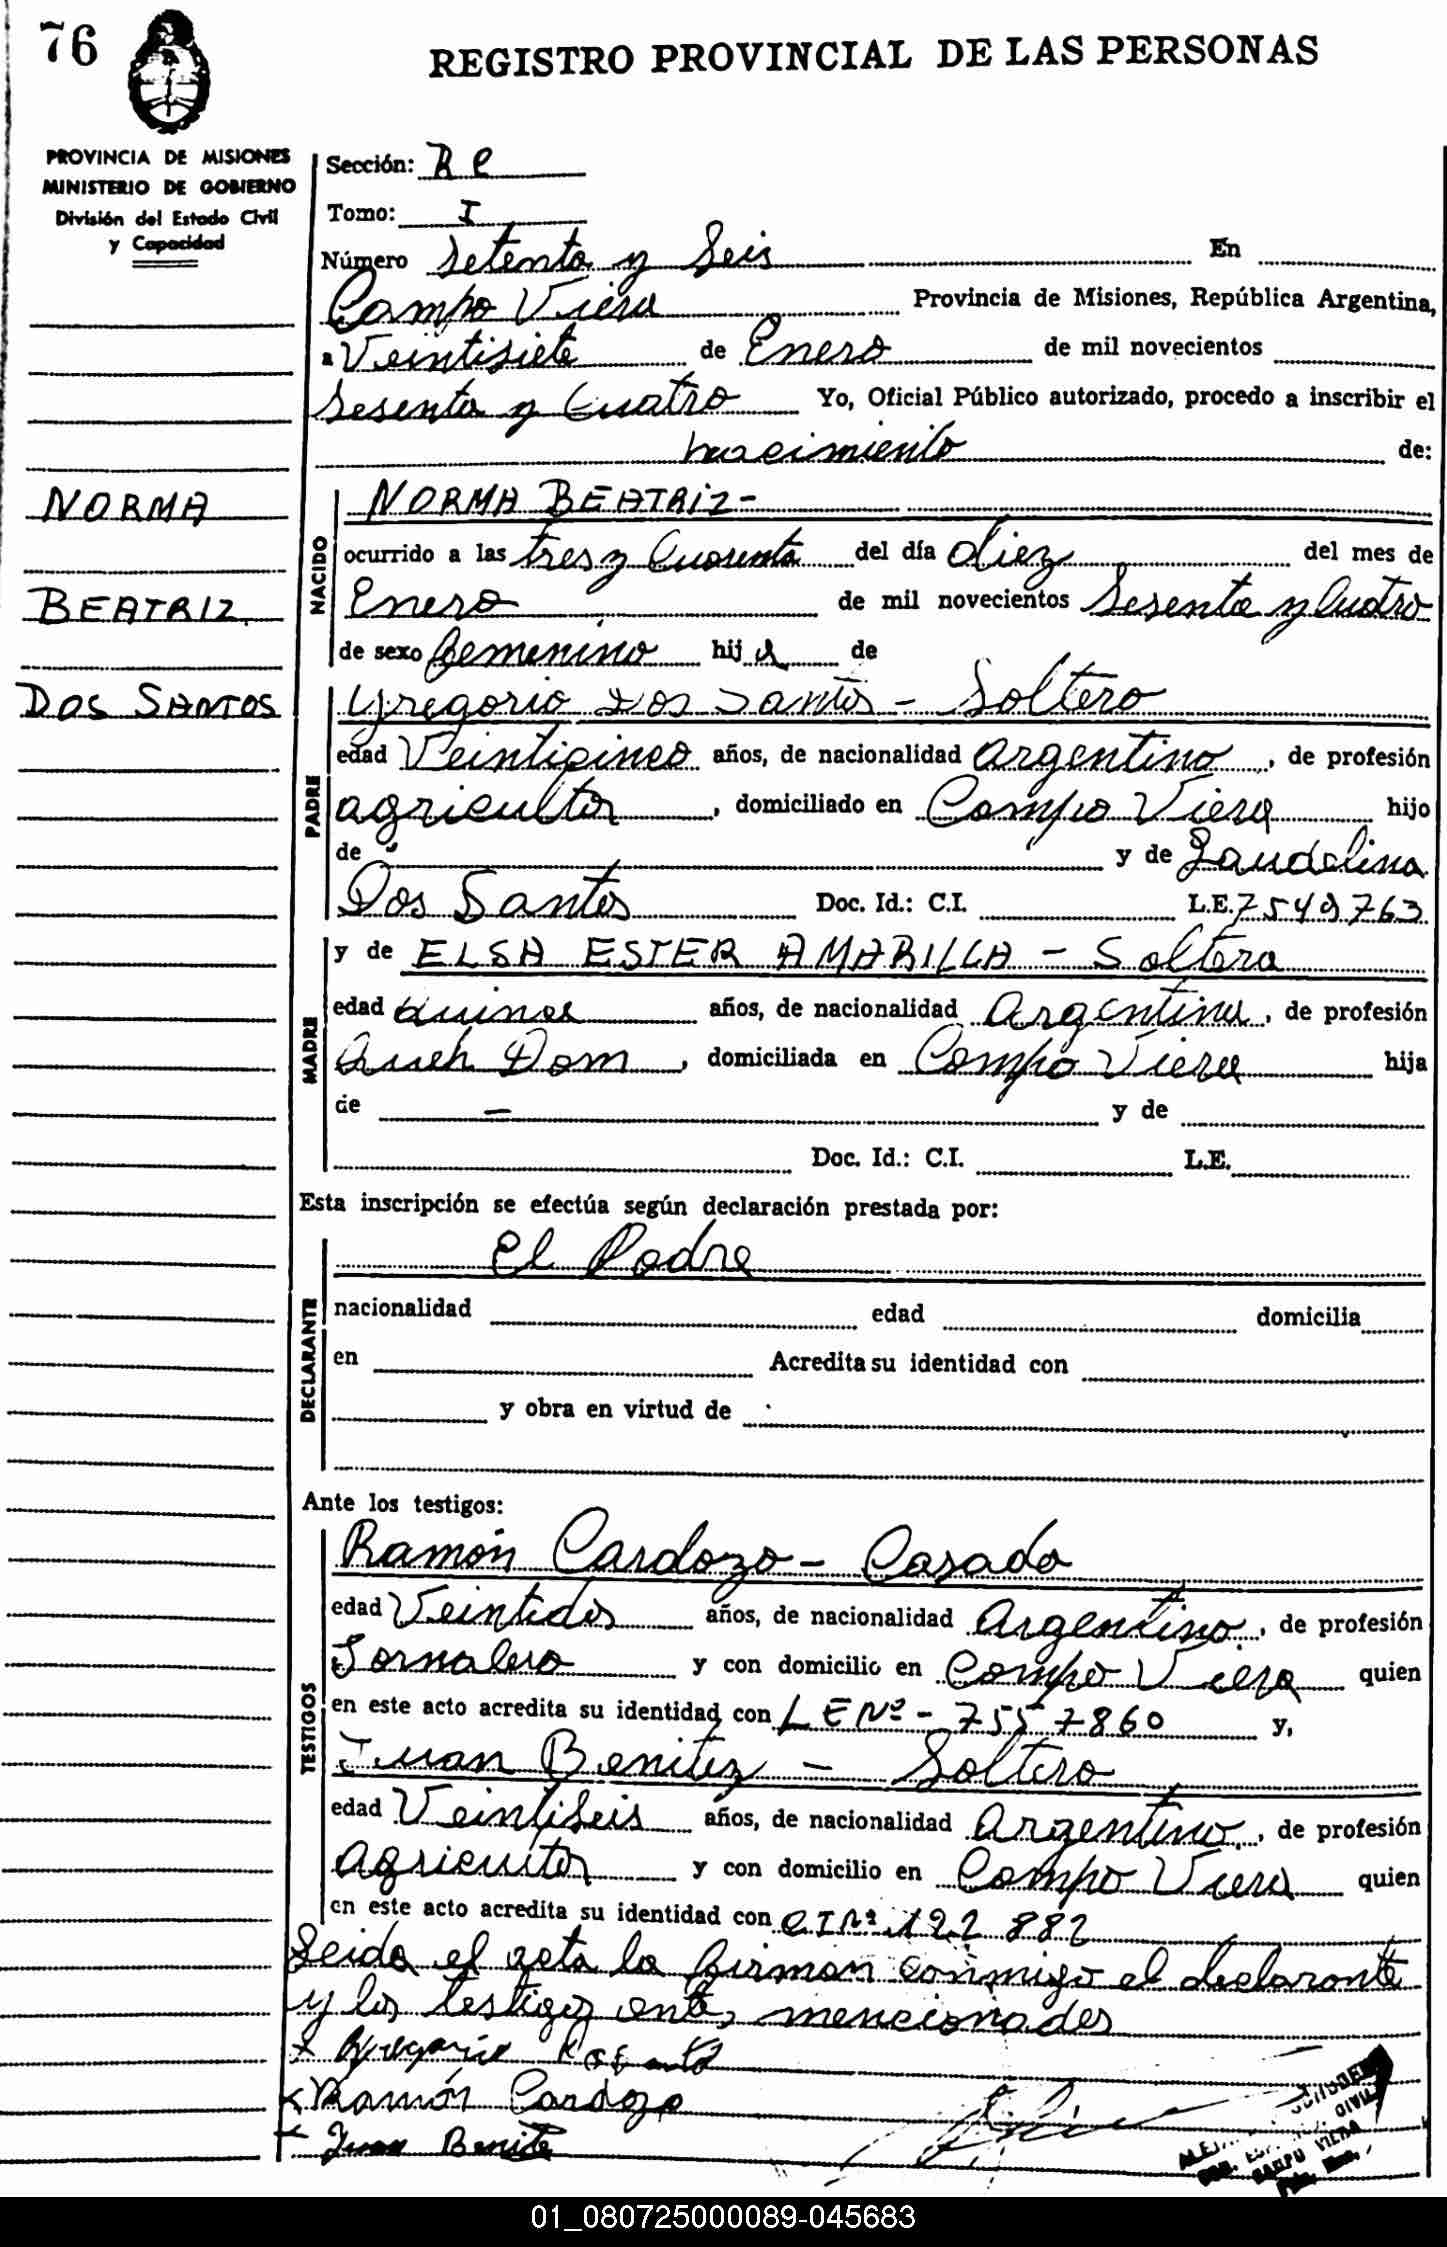 76
REGISTRO PROVINCIAL DE LAS PERSONAS
PROVINCIA DE MISIONES
MINISTERIO DE GOBIERNO
División del Estado Civil
y Capacidad
Sección: R C
Tomo: I
Número Setenta y Seis En
Campo Viera Provincia de Misiones, República Argentina,
a Veintisiete de Enero de mil novecientos
Sesenta y Cuatro Yo, Oficial Público autorizado, procedo a inscribir el
nacimiento de:
NORMA
BEATRIZ
DOS SANTOS
NACIDO
NORMA BEATRIZ-
ocurrido a las tres y Cuarenta del día diez del mes de
Enero de mil novecientos Sesenta y Cuatro
de sexo femenino hija de
PADRE
Gregorio Dos Santos - Soltero
edad Veinticinco años, de nacionalidad argentino, de profesión
agricultor, domiciliado en Campo Viera hijo
de y de Laudelina
Dos Santos Doc. Id.: C.I. L.E. 7549763
MADRE
y de ELSA ESTER AMARILLA - Soltera
edad quince años, de nacionalidad Argentina, de profesión
Queh Dom, domiciliada en Campo Viera hija
de — y de
Doc. Id.: C.I. L.E.
Esta inscripción se efectúa según declaración prestada por:
DECLARANTE
El Padre
nacionalidad edad domicilia
en Acredita su identidad con
y obra en virtud de
Ante los testigos:
TESTIGOS
Ramón Cardozo - Casado
edad Veintidos años, de nacionalidad Argentino, de profesión
Jornalero y con domicilio en Campo Viera quien
en este acto acredita su identidad con L E Nº - 7557860 y,
Juan Benitez - Soltero
edad Veintiseis años, de nacionalidad Argentino, de profesión
Agricultor y con domicilio en Campo Viera quien
en este acto acredita su identidad con C I Nº 122 882
Leida el acta la firman conmigo el declarante
y los testigos ante, mencionados
x Gregorio
x Ramón Cardozo
x Juan Benite
CAMPO VIERA
01_080725000089-045683